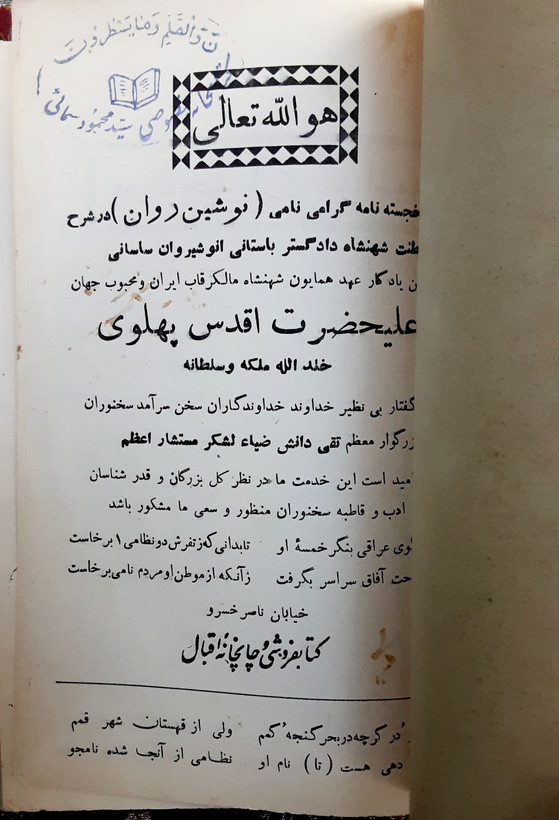 نۤ وَالْقَلَمِ وَمَا يَسْطُرُونَ
خصوصی سید محمود سمائی
هو الله تعالی
خجسته نامه گرامی نامی (نوشین روان) در شرح
طنت شهنشاه دادگستر باستانی انوشیروان ساسانی
ن یادگار عهد همایون شهنشاه مالکرقاب ایران ومحبوب جهان
علیحضرت اقدس پهلوی
خلد الله ملکه وسلطانه
گفتار بی نظیر خداوند خداوندگاران سخن سرآمد سخنوران
زرگوار معظم تقی دانش ضیاء لشکر مستشار اعظم
امید است این خدمت ما در نظر کل بزرگان و قدر شناسان
ادب و قاطبه سخنوران منظور و سعی ما مشکور باشد
گوی عراقی بنگر خمسهٔ او تابدانی که ز تفرش دو نظامی ۱ برخاست
حت آفاق سراسر بگرفت زآنکه از موطن او مردم نامی برخاست
خیابان ناصر خسرو
کتابفروشی و چاپخانهٔ اقبال
در گرچه در بحر گنجه گمم ولی از قهستان شهر قمم
دهی هست (تا) نام او نظامی از آنجا شده نامجو